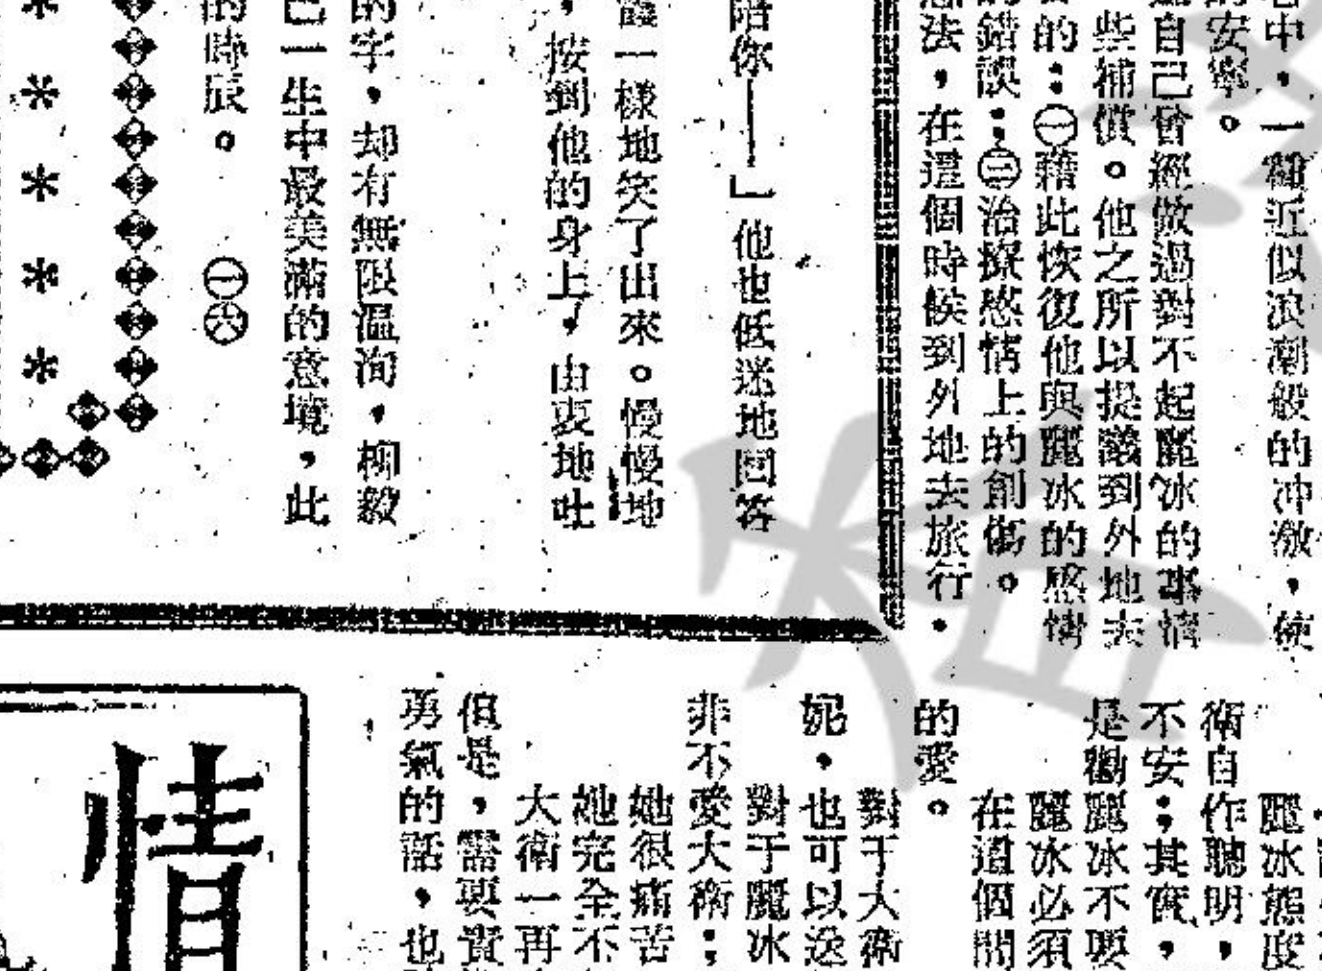 心中，一種近似浪潮般的冲激，使
的安寧。
自己曾經做過對不起麗冰的事情
些補償。他之所以提議到外地去
的：㊀藉此恢復他與麗冰的感情
的錯誤；㊁治療感情上的創傷。
想法，在這個時候到外地去旅行，
陪你——」他也低迷地回答
霞一樣地笑了出來。慢慢地
，按到他的身上，由衷地吐
的字，却有無限溫洵，柳毅
己一生中最美滿的意境，此
的時辰。　㊀㊅
麗冰態度
衛自作聰明，
不安；其實，
是勸麗冰不要
麗冰必須
在這個間
的愛。
對于大衛
妮，也可以送
對于麗冰
非不愛大衛；
她很痛苦
她完全不
大衛一再
但是，需要賣
勇氣的話，也
情